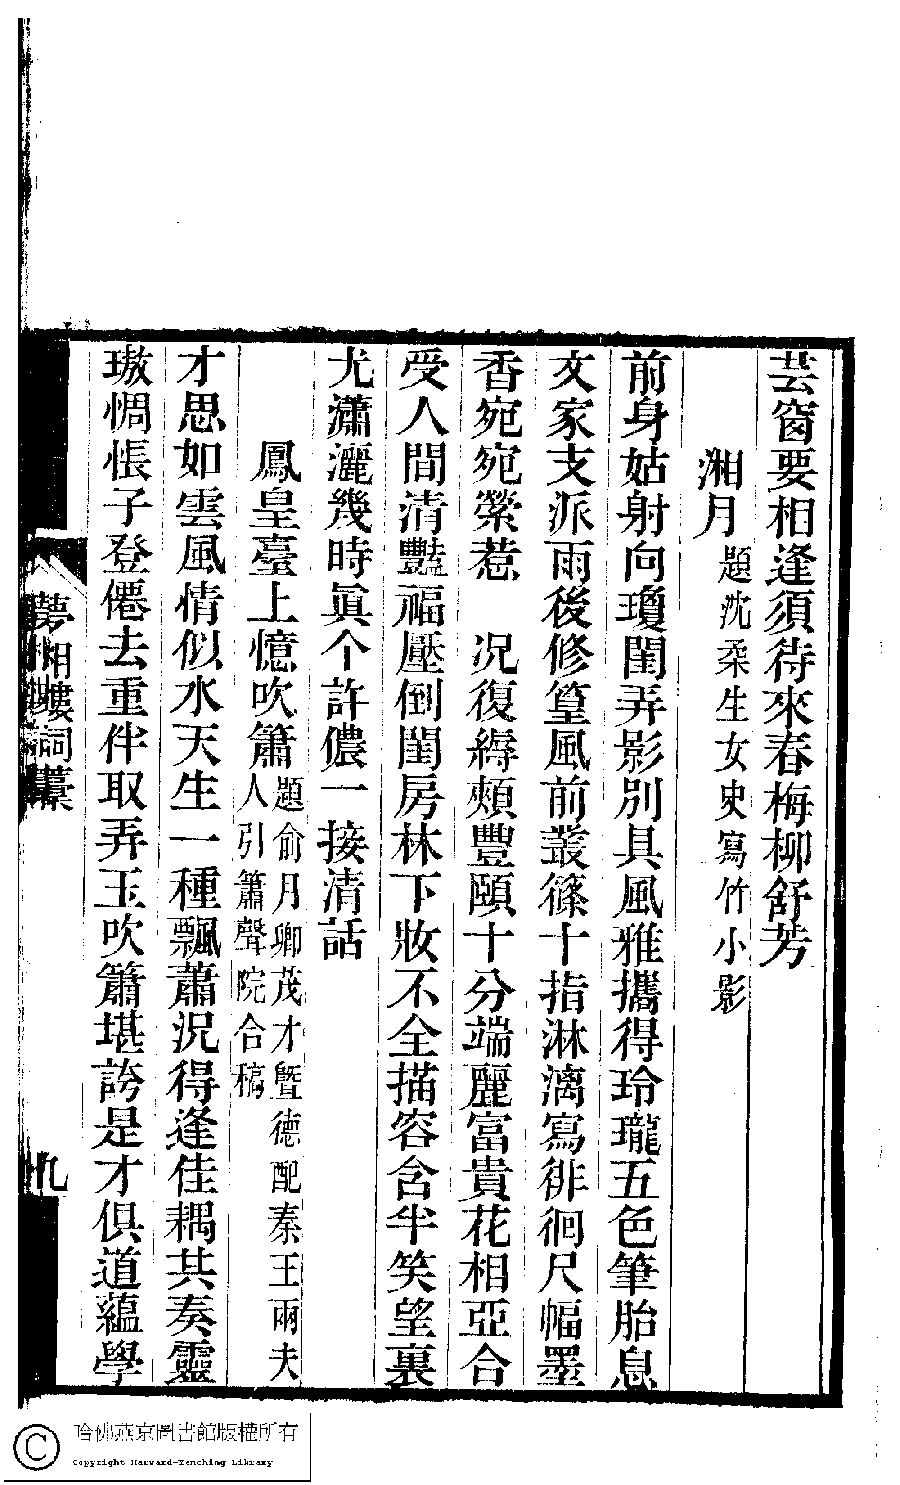 芸窗要相逢須待來春梅柳舒芳
湘月題沈桑生女史寫竹小影
前身姑射向瓊閨弄影別具風雅攜得玲瓏五色筆胎息
文家支派雨後修篁風前叢篠十指淋漓寫徘徊尺幅墨
香宛宛縈惹　況復縟頰豐頤十分端麗富貴花相亞合
受人間清豔福壓倒閨房林下妝不全描容含半笑望裏
尤瀟灑幾時眞个許儂一接清話
鳳皇臺上憶吹簫題俞月卿茂才曁德配秦王兩夫
人引簫聲院合稿
才思如雲風情似水天生一種飄蕭況得逢佳耦共奏靈
璈惆悵子登僊去重伴取弄玉吹簫堪誇是才俱道蘊學
夢湘樓詞藁
九
哈佛燕京圖書館版權所有
Copyright Harvard-Yenching Library